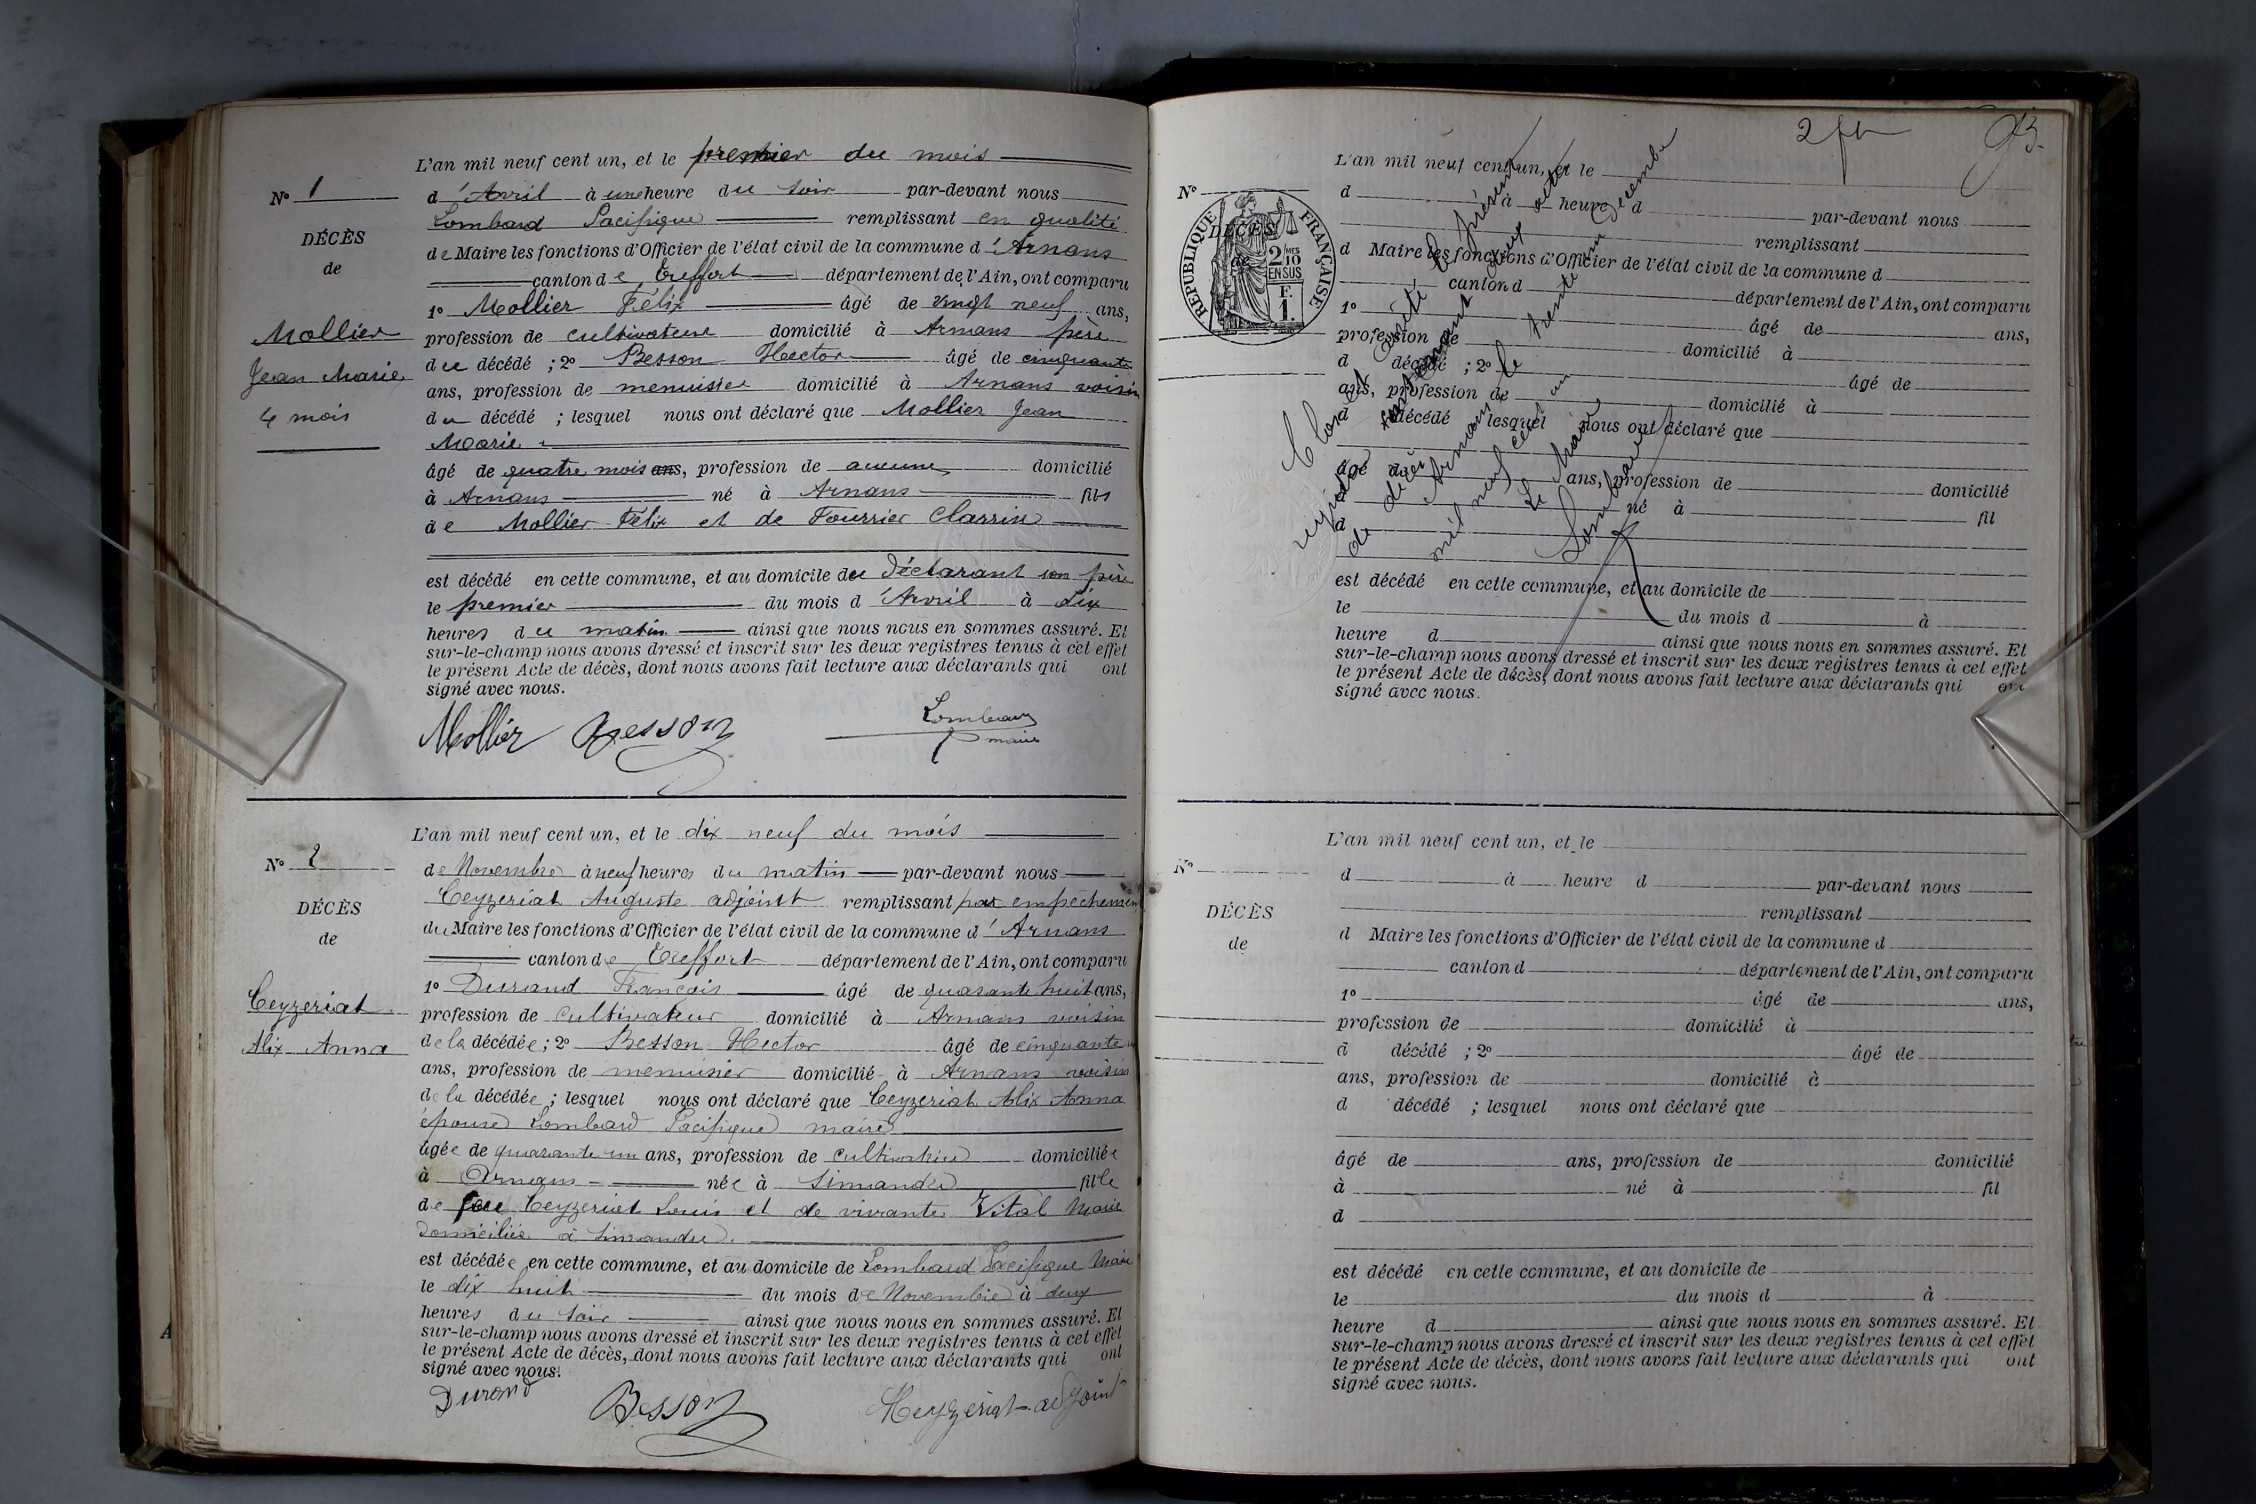 L'an mil neuf cent un, et le premier du mois
N° 1
d'Avril à une heure du soir par-devant nous
Lombard Pacifique remplissant en qualité
DÉCÈS
de Maire les fonctions d'Officier de l'état civil de la commune d'Arnans
de
canton de Treffort département de l'Ain, ont comparu
1° Mollier Félix âgé de vingt neuf ans,
Mollier
profession de cultivateur domicilié à Arnans père
du décédé ; 2° Besson Hector âgé de cinquante
Jean Marie
ans, profession de menuisier domicilié à Arnans voisin
4 mois
du décédé ; lesquel nous ont déclaré que Mollier Jean
Marie
âgé de quatre mois ans, profession de aucune domicilié
à Arnans né à Arnans fils
de Mollier Félix et de Fourrier Clarrin
est décédé en cette commune, et au domicile du déclarant son père
le premier du mois d'Avril à dix
heures du matin ainsi que nous nous en sommes assuré. Et
sur-le-champ nous avons dressé et inscrit sur les deux registres tenus à cet effet
le présent Acte de décès, dont nous avons fait lecture aux déclarants qui ont
signé avec nous.
Mollier Besson Lombard
maire
L'an mil neuf cent un, et le dix neuf du mois
N° 2
de Novembre à neuf heures du matin par-devant nous
Ceyzeriat Auguste adjoint remplissant par empêchement
DÉCÈS
du Maire les fonctions d'Officier de l'état civil de la commune d'Arnans
de
canton de Treffort département de l'Ain, ont comparu
1° Durand François âgé de quarante huit ans,
Ceyzeriat
profession de cultivateur domicilié à Arnans voisin
Alix Anna
de la décédée ; 2° Besson Hector âgé de cinquante
ans, profession de menuisier domicilié à Arnans voisin
de la décédée ; lesquel nous ont déclaré que Ceyzeriat Alix Anna
épouse Lombard Pacifique maire
âgée de quarante un ans, profession de cultivatrice domiciliée
à Arnans née à Simandre fille
de feu Ceyzeriat Louis et de vivante Vital Marie
domiciliée à Simandre.
est décédée en cette commune, et au domicile de Lombard Pacifique Maire
le dix huit du mois de Novembre à deux
heures du soir ainsi que nous nous en sommes assuré. Et
sur-le-champ nous avons dressé et inscrit sur les deux registres tenus à cet effet
le présent Acte de décès, dont nous avons fait lecture aux déclarants qui ont
signé avec nous.
Durand Besson Ceyzeriat adjoint
2 93.
L'an mil neuf cent un, et le
N°
d à heure d par-devant nous
remplissant
RÉPUBLIQUE FRANÇAISE
2/10 EN SUS
F. 1.
DÉCÈS
de
d Maire les fonctions d'Officier de l'état civil de la commune d
canton d département de l'Ain, ont comparu
1° âgé de ans,
profession de domicilié à
d décédé ; 2° âgé de
ans, profession de domicilié à
d décédé lesquel nous ont déclaré que
âgé de ans, profession de domicilié
à né à fil
d
est décédé en cette commune, et au domicile de
le du mois d à
heure d ainsi que nous nous en sommes assuré. Et
sur-le-champ nous avons dressé et inscrit sur les deux registres tenus à cet effet
le présent Acte de décès, dont nous avons fait lecture aux déclarants qui ont
signé avec nous.
Clos et arrêté le présent
registre contenant deux actes
de décès
Arnans le trente un décembre
mil neuf cent un
Le Maire
Lombard
L'an mil neuf cent un, et le
N°
d à heure d par-devant nous
remplissant
DÉCÈS
d Maire les fonctions d'Officier de l'état civil de la commune d
de
canton d département de l'Ain, ont comparu
1° âgé de ans,
profession de domicilié à
d décédé ; 2° âgé de
ans, profession de domicilié à
d décédé ; lesquel nous ont déclaré que
âgé de ans, profession de domicilié
à né à fil
d
est décédé en cette commune, et au domicile de
le du mois d à
heure d ainsi que nous nous en sommes assuré. Et
sur-le-champ nous avons dressé et inscrit sur les deux registres tenus à cet effet
le présent Acte de décès, dont nous avons fait lecture aux déclarants qui ont
signé avec nous.